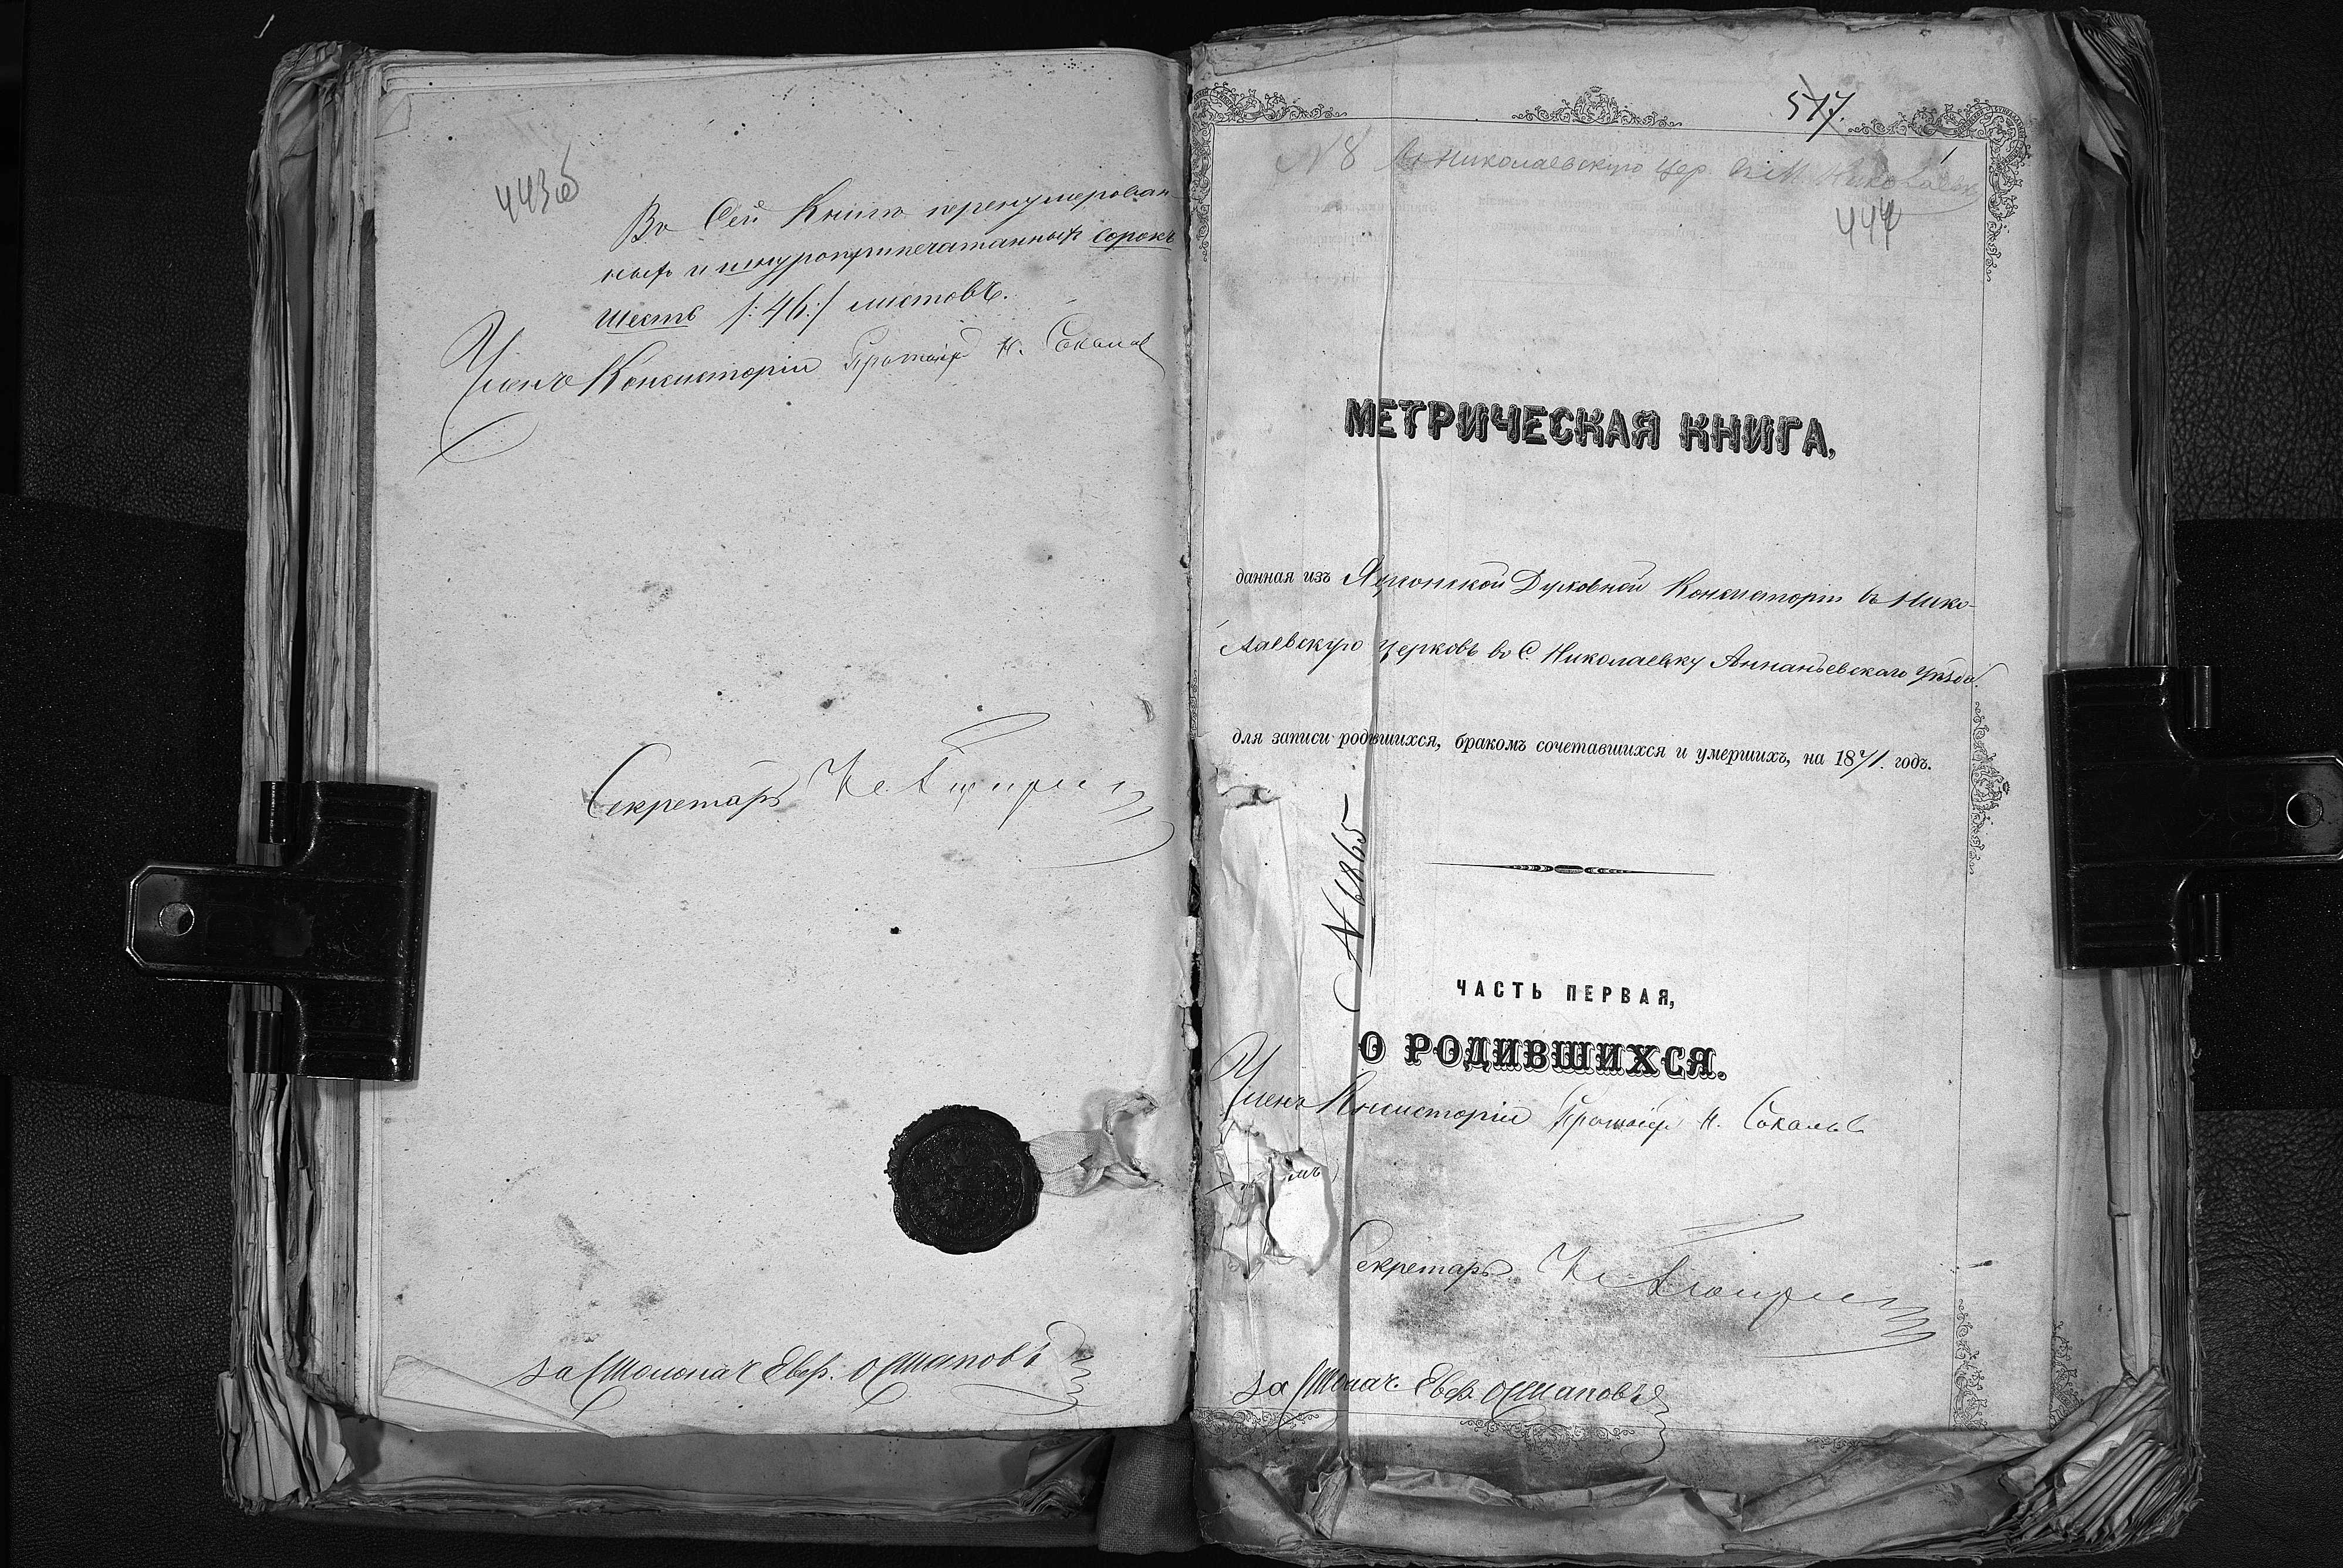 443об
Въ Сей Книгѣ перенумерован
ныхъ и шнуроприпечатанныхъ сорокъ
шесть /:46:/ листовъ.
Членъ Консисторіи Протоіер Н. Соколов
Секретарь
за Столонач Евф. Осташовъ
577.
N 8 Николаевскую цер. Николаевк
444
МЕТРИЧЕСКАЯ КНИГА,
данная изъ Духовной Консисторіи въ Нико-
лаевскую церковь во С. Николаевку Ананьевскаго уѣзда.
для записи родившихся, бракомъ сочетавшихся и умершихъ, на 1871. годъ.
N 6865
ЧАСТЬ ПЕРВАЯ,
О РОДИВШИХСЯ.
Членъ Консисторіи Протоіер Н. Соколов
Секретарь
за Столонач. Евф. Осташовъ